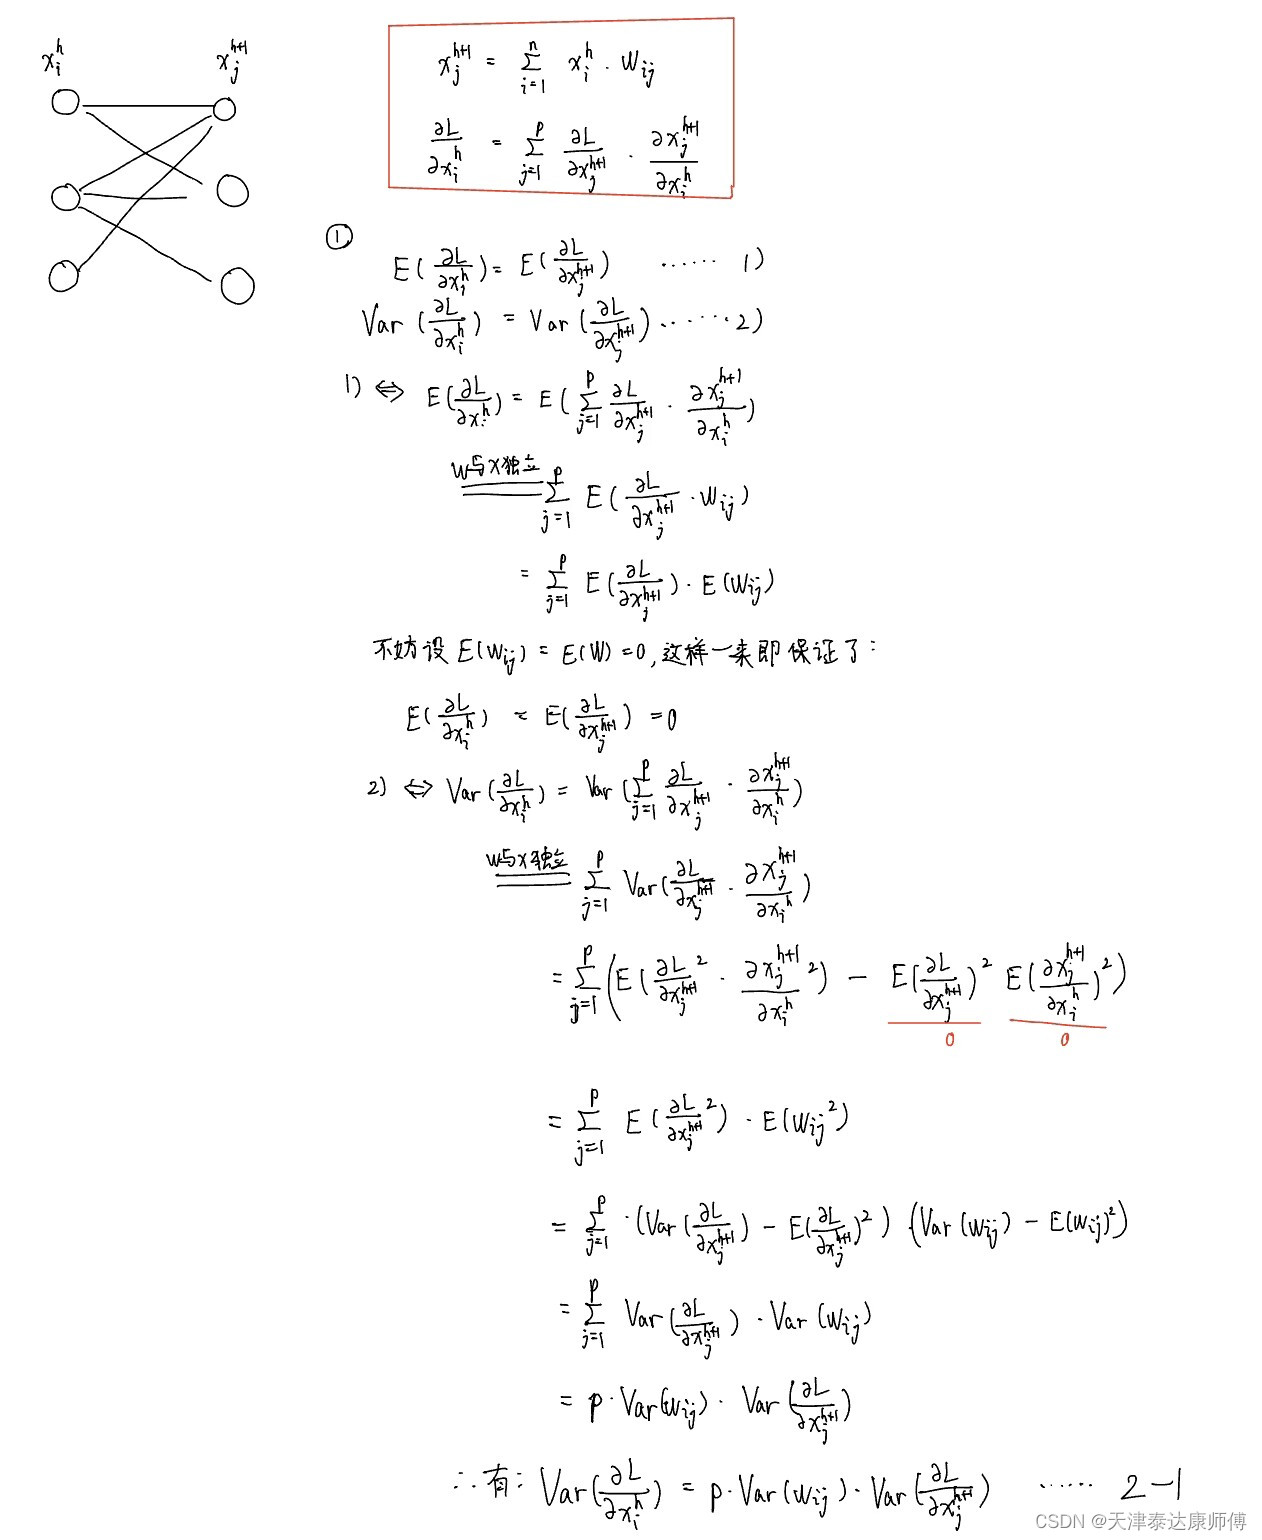 x_i^h x_j^{h+1}
x_j^{h+1} = \sum_{i=1}^{n} x_i^h · W_{ij}
\frac{∂L}{∂x_i^h} = \sum_{j=1}^{p} \frac{∂L}{∂x_j^{h+1}} · \frac{∂x_j^{h+1}}{∂x_i^h}
①
E(\frac{∂L}{∂x_i^h}) = E(\frac{∂L}{∂x_j^{h+1}}) ······ 1)
Var(\frac{∂L}{∂x_i^h}) = Var(\frac{∂L}{∂x_j^{h+1}}) ······ 2)
1) ⇔ E(\frac{∂L}{∂x_i^h}) = E(\sum_{j=1}^{p} \frac{∂L}{∂x_j^{h+1}} · \frac{∂x_j^{h+1}}{∂x_i^h})
W与X独立 \sum_{j=1}^{p} E(\frac{∂L}{∂x_j^{h+1}} · W_{ij})
= \sum_{j=1}^{p} E(\frac{∂L}{∂x_j^{h+1}}) · E(W_{ij})
不妨设 E(W_{ij}) = E(W) = 0, 这样一来即保证了:
E(\frac{∂L}{∂x_i^h}) = E(\frac{∂L}{∂x_j^{h+1}}) = 0
2) ⇔ Var(\frac{∂L}{∂x_i^h}) = Var(\sum_{j=1}^{p} \frac{∂L}{∂x_j^{h+1}} · \frac{∂x_j^{h+1}}{∂x_i^h})
W与X独立 \sum_{j=1}^{p} Var(\frac{∂L}{∂x_j^{h+1}} · \frac{∂x_j^{h+1}}{∂x_i^h})
= \sum_{j=1}^{p} (E(\frac{∂L}{∂x_j^{h+1}}^2 · \frac{∂x_j^{h+1}}{∂x_i^h}^2) - E(\frac{∂L}{∂x_j^{h+1}})^2 E(\frac{∂x_j^{h+1}}{∂x_i^h})^2)
0 0
= \sum_{j=1}^{p} E(\frac{∂L}{∂x_j^{h+1}}^2) · E(W_{ij}^2)
= \sum_{j=1}^{p} · (Var(\frac{∂L}{∂x_j^{h+1}}) - E(\frac{∂L}{∂x_j^{h+1}})^2) (Var(W_{ij}) - E(W_{ij})^2)
= \sum_{j=1}^{p} Var(\frac{∂L}{∂x_j^{h+1}}) · Var(W_{ij})
= p · Var(W_{ij}) · Var(\frac{∂L}{∂x_j^{h+1}})
∴有: Var(\frac{∂L}{∂x_i^h}) = p · Var(W_{ij}) · Var(\frac{∂L}{∂x_j^{h+1}}) ······ 2-1
CSDN @天津泰达康师傅